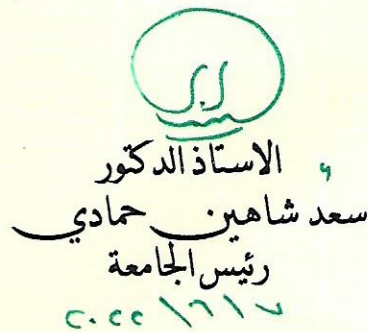 الاستاذ الدكتور
سعد شاهين حمادي
رئيس الجامعة
٢٠٢٢/٦/٧